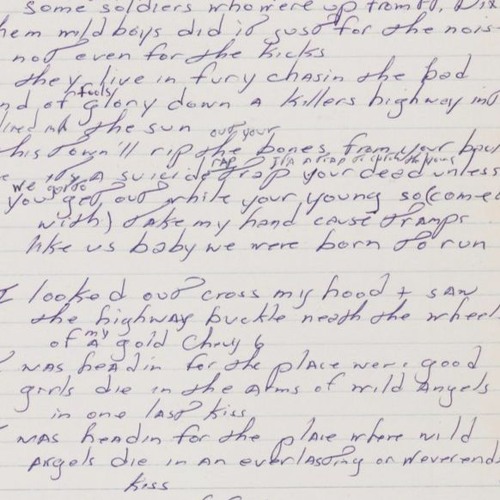 some soldiers who were up from Ft. Dix
them wild boys did it just for the nois
not even for the kicks
they live in fury chasin the bad
fools
nd of glory down a killers highway int
the sun
out your
this town'll rip the bones from your bac
rap its a trap to catch the young
its a suicide trap your dead unless
we gotta
you get out while your young so (come
with) take my hand cause tramps
like us baby we were born to run
I looked out cross my hood + saw
the highway buckle neath the wheel
my
of a gold Chevy 6
I was headin for the place were good
girls die in the arms of wild Angels
in one last kiss
I was headin for the place where wild
angels die in an everlasting or Neverend
kiss